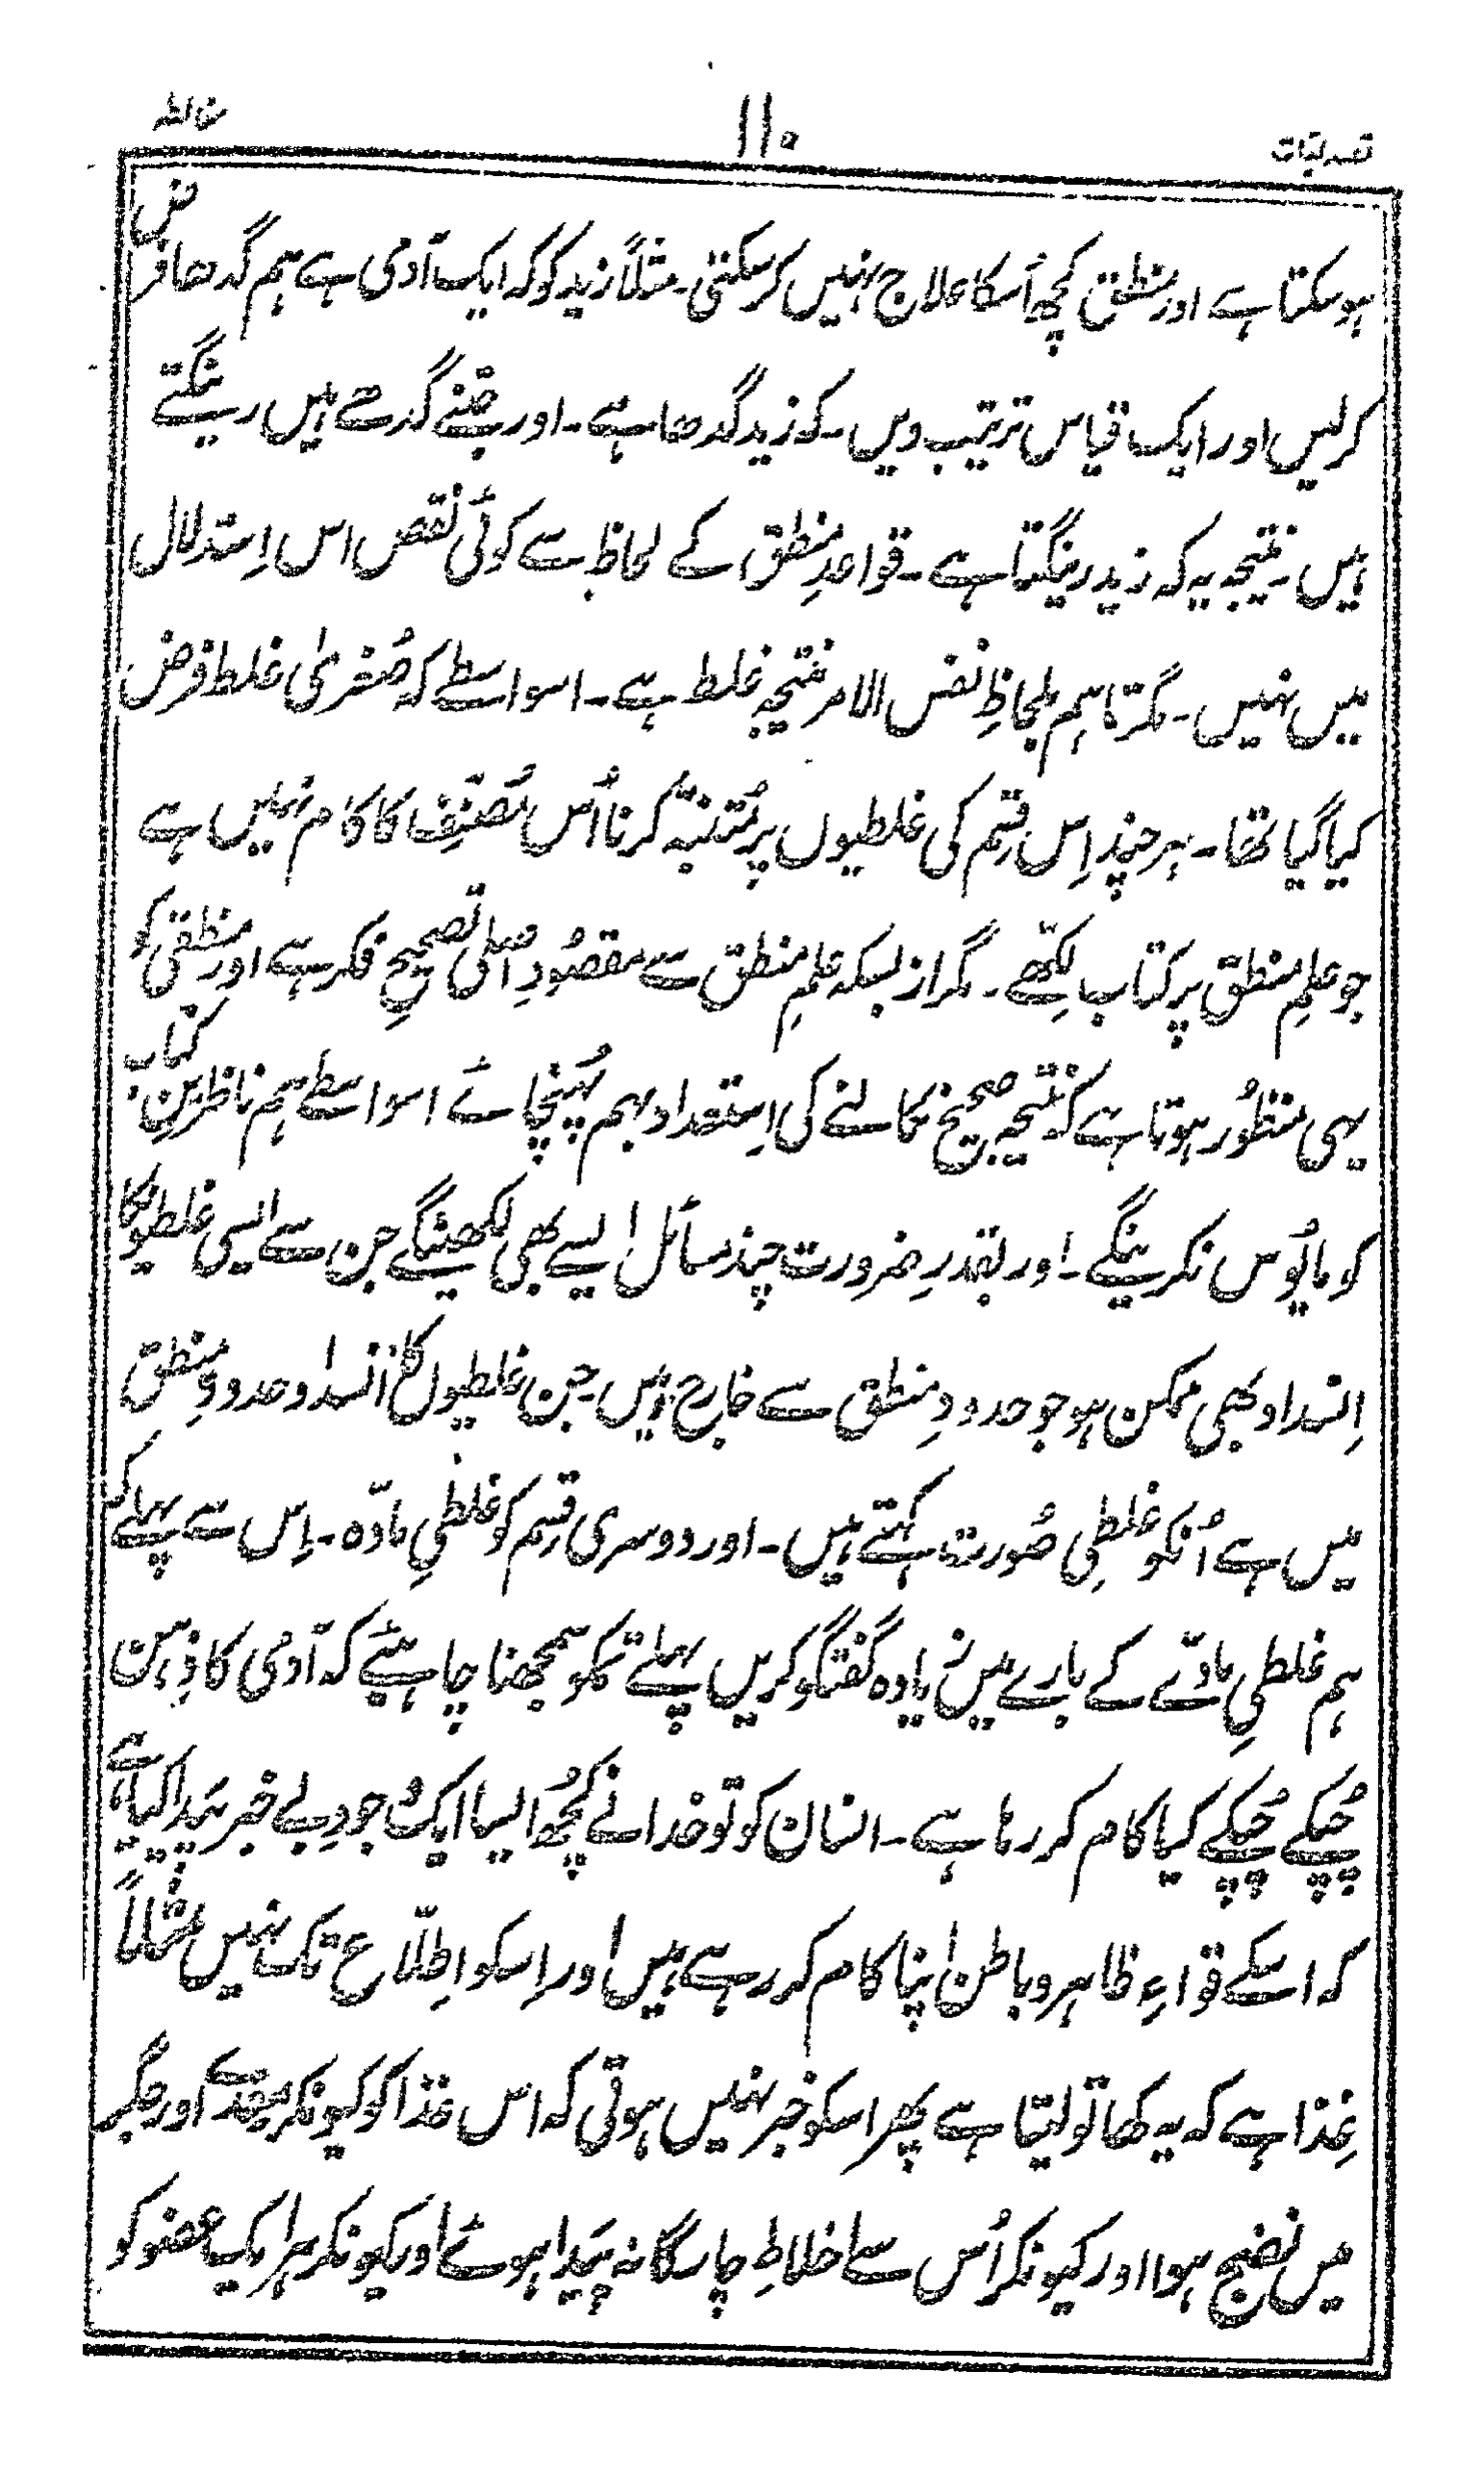 تصدیقات ۱۱۰ مغالطہ
ہوسکتا ہے اور منطق کچھ اُسکا علاج نہیں کرسکتی۔ مثلاً زید کو کہ ایک آدمی ہے ہم گدھا فرض
کرلیں اور ایک قیاس ترتیب دیں۔ کہ زید گدھا ہے۔ اور جتنے گدھے ہیں رینگتے
ہیں۔ نتیجہ یہ کہ زید رینگتا ہے۔ قواعدِ منطق کے لحاظ سے کوئی نقص اس اِستدلال
میں نہیں۔ مگر تاہم بلحاظِ نفس الامر نتیجہ غلط ہے۔ اسواسطے کہ صُغریٰ غلط فرض
کیا گیا تھا۔ ہر چند اِس قِسم کی غلطیوں پر مُتنبّہ کرنا اُس مُصنِّف کا کام نہیں ہے
جو علمِ منطق پر کتاب لِکھّے۔ مگر از بسکہ علمِ منطق سے مقصُودِ اصلی تصحیحِ فکر ہے اور منطقی کو
یہی منظُور ہوتا ہے کہ نتیجہ صحیح نکالنے کی اِستعداد بہم پہُنچائے اسواسطے ہم ناظرینِ کتاب
کو مایُوس نکرینگے۔ اور بقدرِ ضرورت چند مسائل ایسے بھی لکھینگے جن سے ایسی غلطیونکا
اِنسداد بھی ممکن ہو جو حدودِ منطق سے خارج ہیں۔ جن غلطیوں کا اِنسداد حدودِ منطق
میں ہے اُنکو غلطیِ صُورت کہتے ہیں۔ اور دوسری قِسم کو غلطیِ مادّہ۔ اِس سے پہلے کہ
ہم غلطیِ مادّے کے بارے میں زیادہ گفتگو کریں پہلے تمکو سمجھنا چاہیئے کہ آدمی کا ذِہن
چُپکے چُپکے کیا کام کر رہا ہے۔ انسان کو تو خدا نے کچُھ ایسا ایک وُجودِ بے خبر پَیدا کیا ہے
کہ اسکے قواءِ ظاہر و باطن اپنا کام کر رہے ہیں اور اِسکو اِطلّاع تک نہیں مثلاً
غِذا ہے کہ یہ کھا تو لیتا ہے پھر اسکو خبر نہیں ہوتی کہ اس غذا کو کیونکر معدے اور جگر
میں نضج ہوا اور کیونکر اُس سے اخلاطِ چارگانہ پَیدا ہوئے اور کیونکر ہر ایک عضو کو